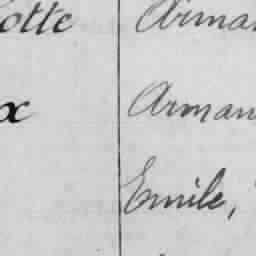 otte Arman
x Arman
Emile,